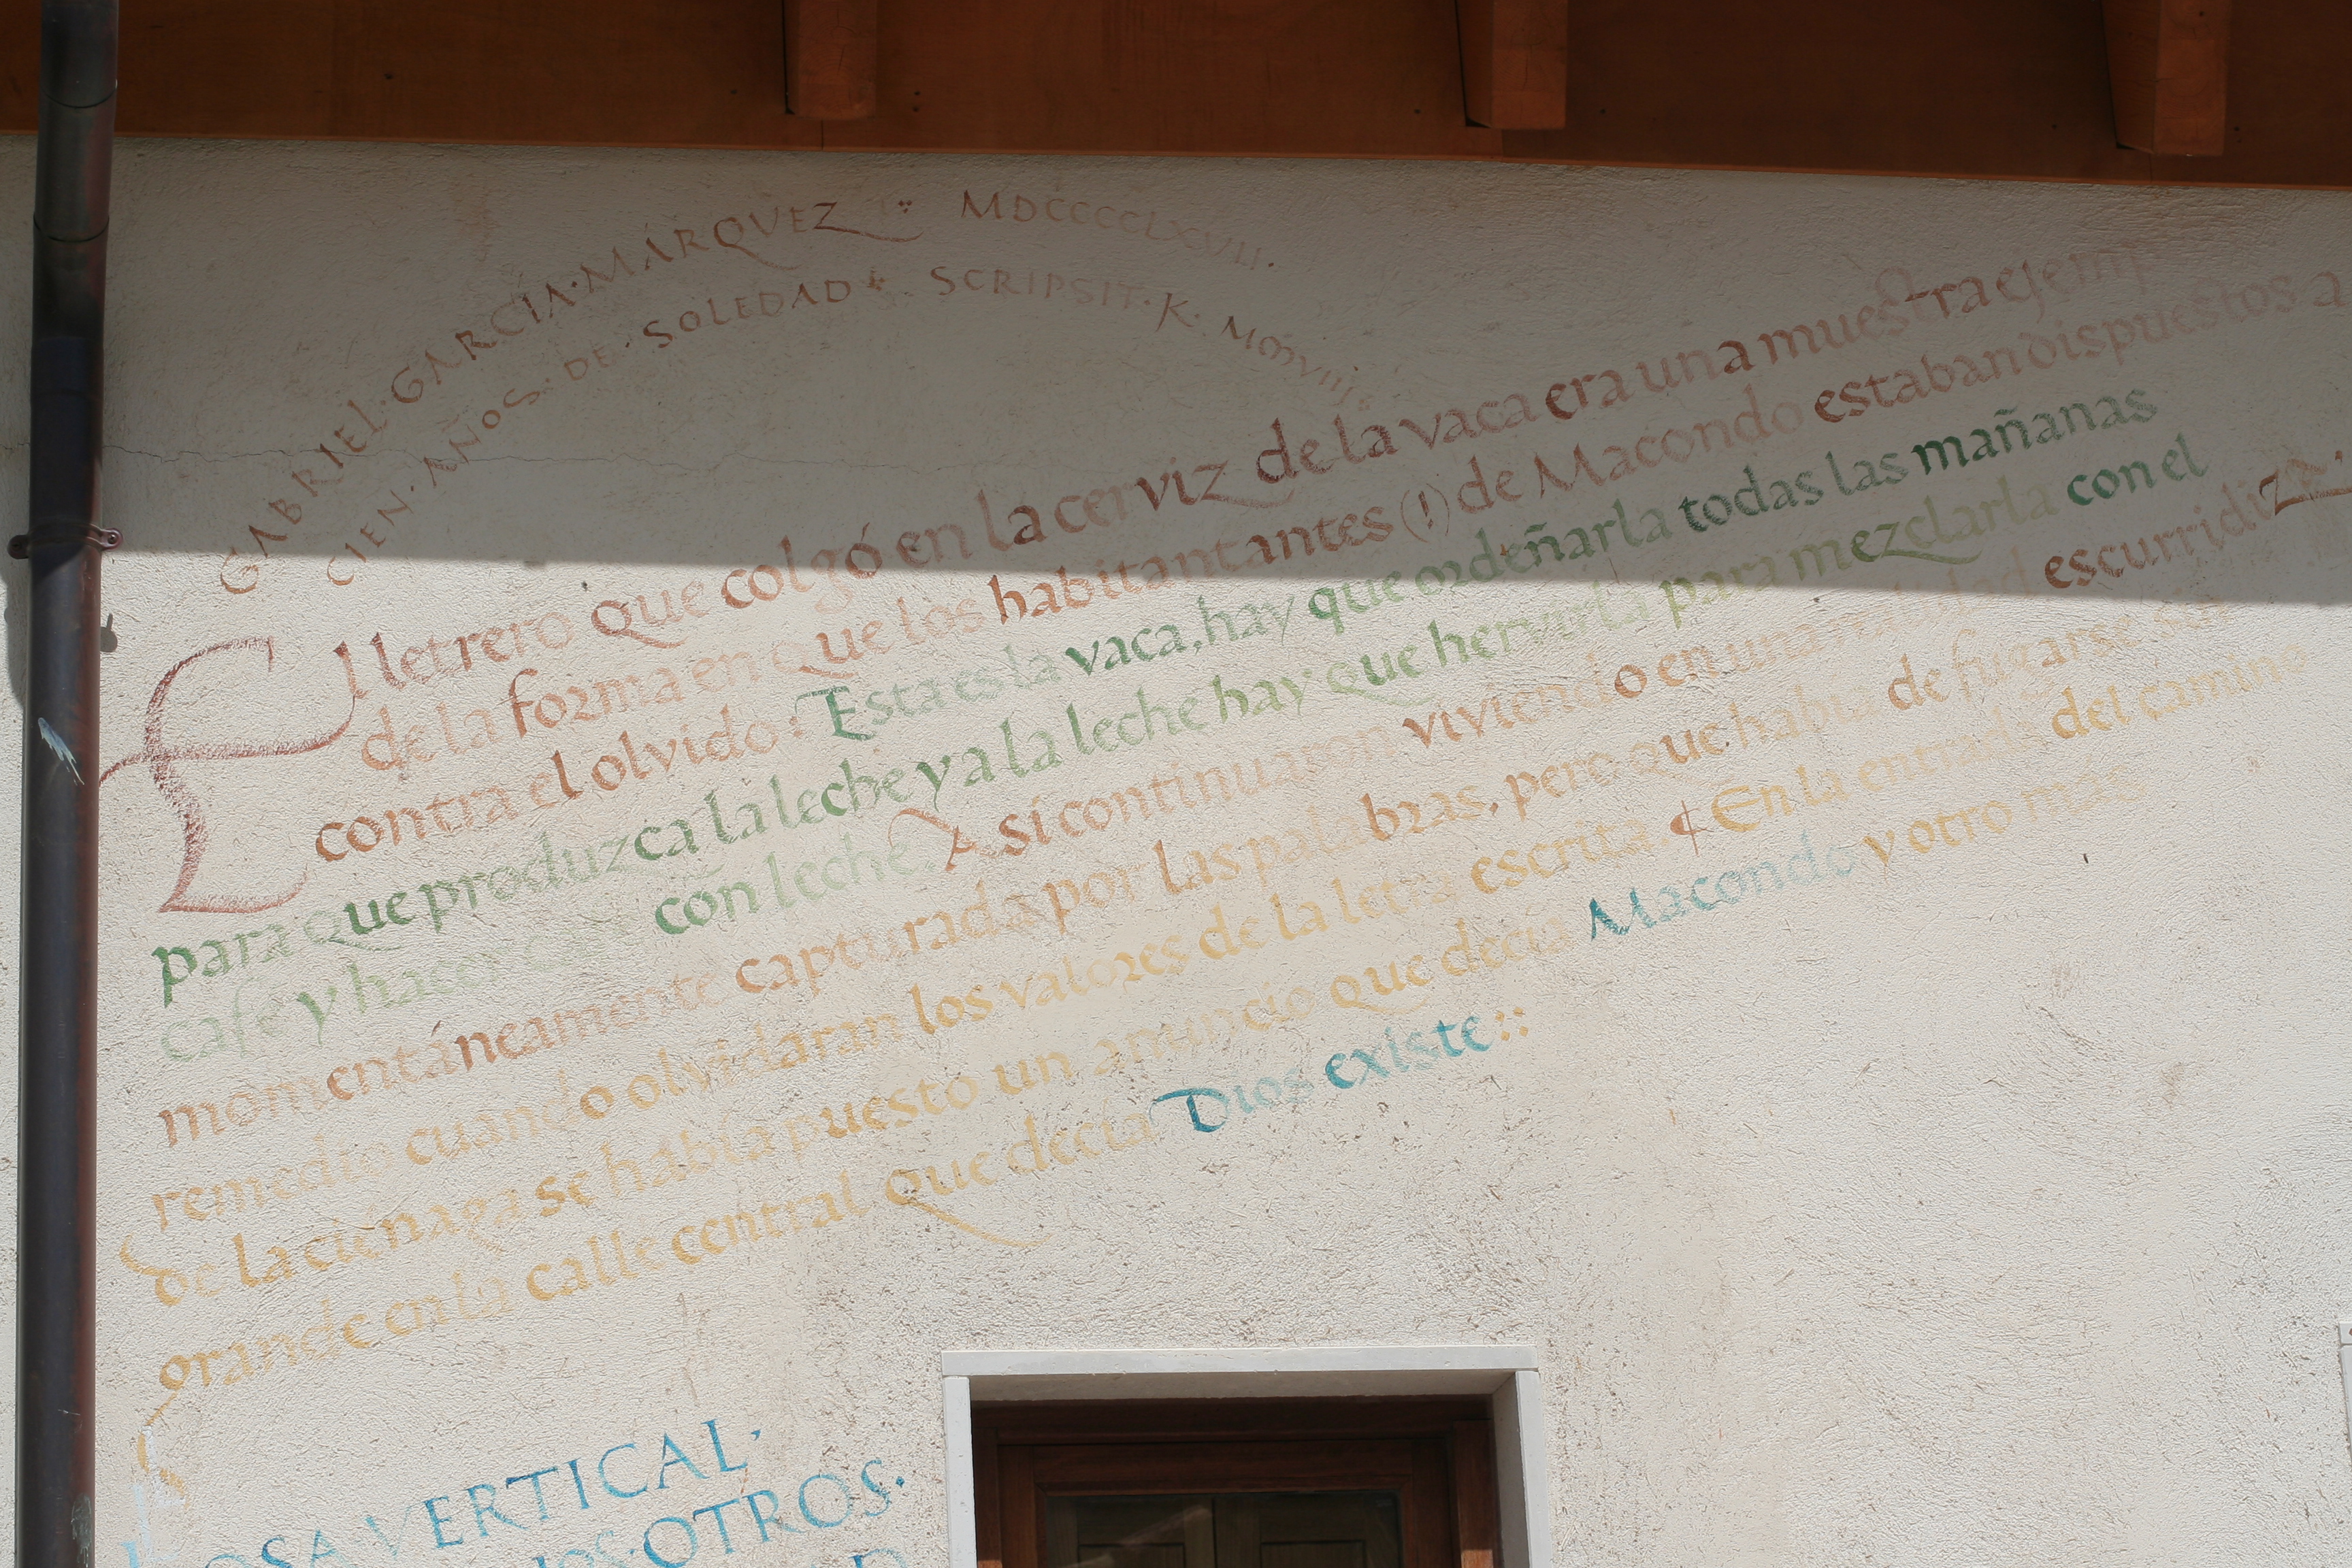 GABRIEL · GARCIA · MÁRQUEZ MDCCCCLXVIII ·
CIEN · AÑOS · DE · SOLEDAD SCRIPSIT · K ·
El letrero que colgó en la cerviz de la vaca era una muestra ejemp
de la forma en que los habitantantes (!) de Macondo estaban dispuestos a
contra el olvido: Esta es la vaca, hay que ordeñarla todas las mañanas
para que produzca la leche y a la leche hay que hervirla para mezclarla con el
café y hacer café con leche. Así continuaron viviendo en una realidad escurridiza.
momentáneamente capturada por las palabras, pero que había de fugarse sin
remedio cuando olvidaran los valores de la letra escrita. ¶ En la entrada del camino
de la ciénaga se había puesto un anuncio que decía Macondo y otro más
grande en la calle central que decía Dios existe::
OSA · VERTICAL ·
OTROS ·